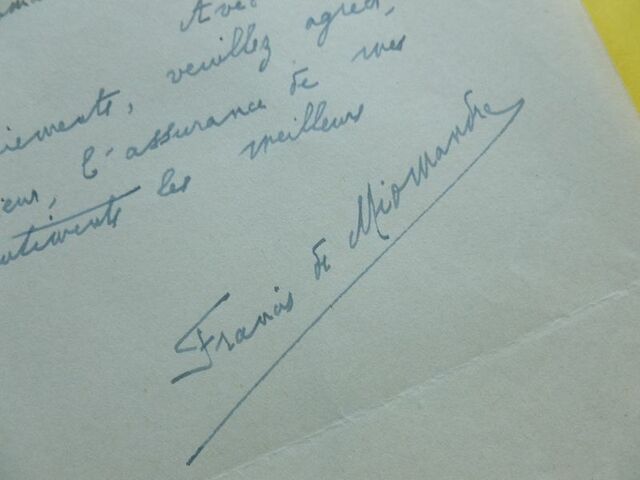 Avec
iements, veuillez agréer,
ieur, l'assurance de mes
ntiments les meilleurs
Francis de Miomandre